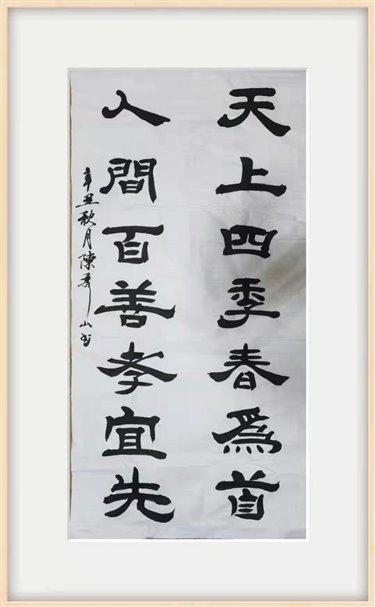 天上四季春為首
人間百善孝宜先
辛丑秋月陳秀山书